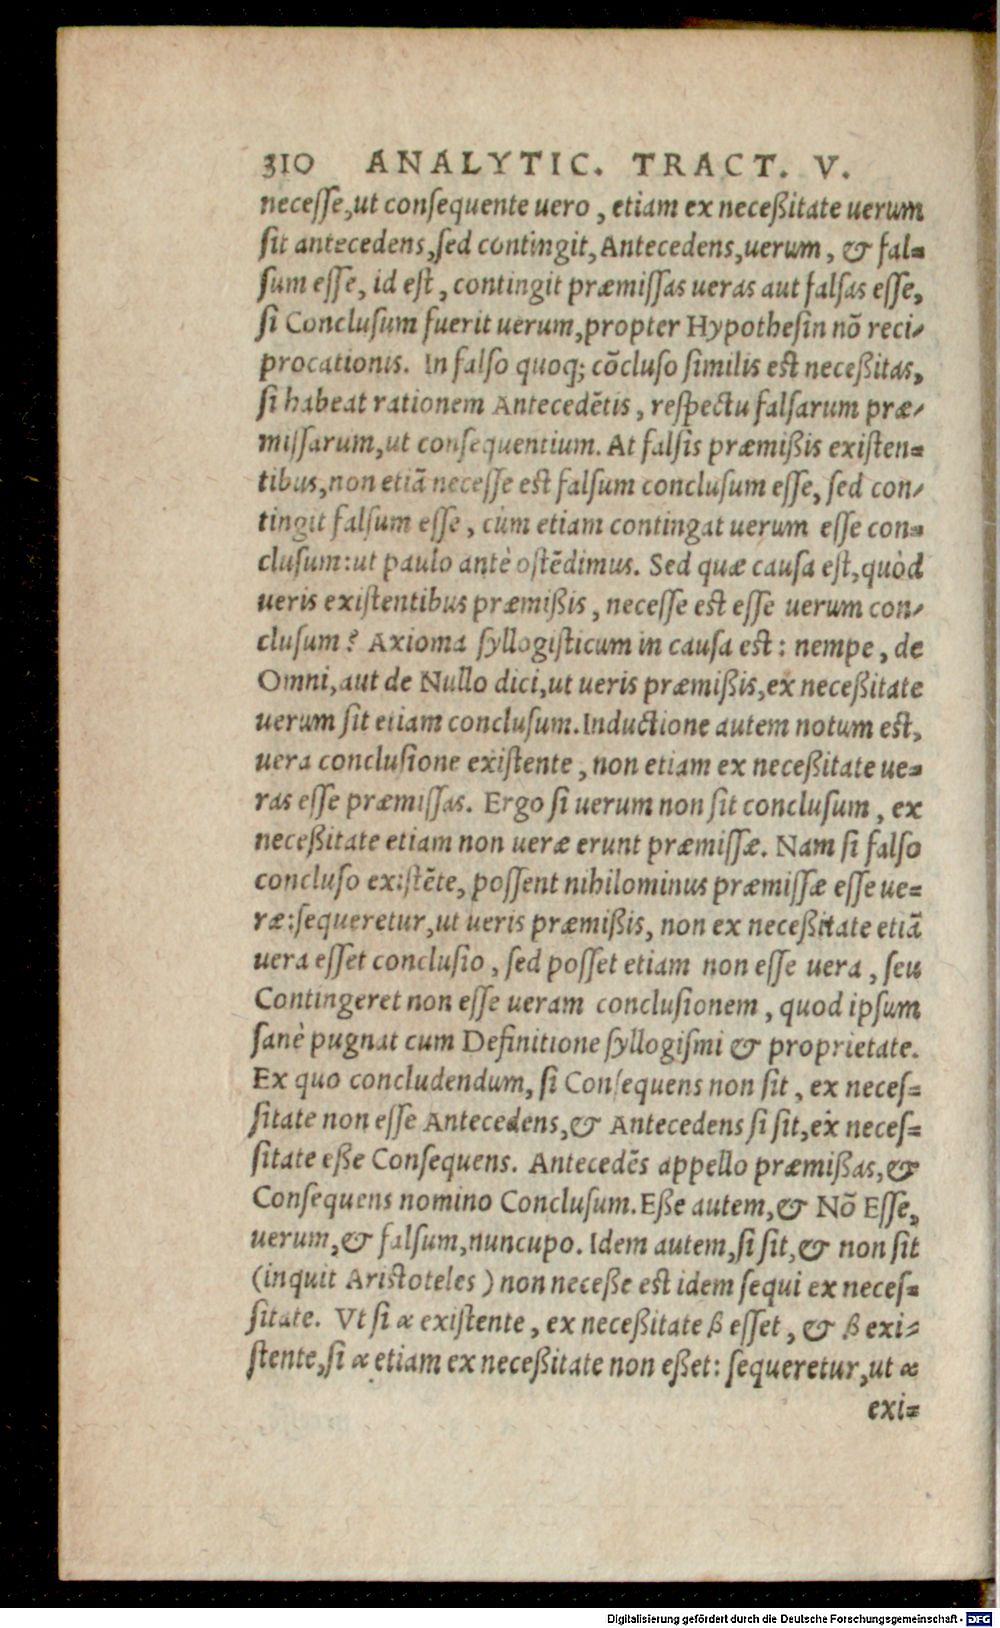 310 ANALYTIC. TRACT. V.
necesse, ut consequente uero, etiam ex neceßitate uerum
sit antecedens, sed contingit, Antecedens, uerum, & fal=
sum esse, id est, contingit præmissas ueras aut falsas esse,
si Conclusum fuerit uerum, propter Hypothesin nõ reci-
procationis. In falso quoq; cõcluso similis est neceßitas,
si habeat rationem Antecedẽtis, respectu falsarum præ-
missarum, ut consequentium. At falsis præmißis existen=
tibus, non etiã necesse est falsum conclusum esse, sed con-
tingit falsum esse, cùm etiam contingat uerum esse con=
clusum: ut paulo antè ostẽdimus. Sed quæ causa est, quòd
ueris existentibus præmißis, necesse est esse uerum con-
clusum? Axioma syllogisticum in causa est: nempe, de
Omni, aut de Nullo dici, ut ueris præmißis, ex neceßitate
uerum sit etiam conclusum. Inductione autem notum est,
uera conclusione existente, non etiam ex neceßitate ue=
ras esse præmissas. Ergo si uerum non sit conclusum, ex
neceßitate etiam non ueræ erunt præmissæ. Nam si falso
concluso existẽte, possent nihilominus præmissæ esse ue=
ræ: sequeretur, ut ueris præmißis, non ex neceßitate etiã
uera esset conclusio, sed posset etiam non esse uera, seu
Contingeret non esse ueram conclusionem, quod ipsum
sanè pugnat cum Definitione syllogismi & proprietate.
Ex quo concludendum, si Consequens non sit, ex neces=
sitate non esse Antecedens, & Antecedens si sit, ex neces=
sitate eße Consequens. Antecedẽs appello præmißas, &
Consequens nomino Conclusum. Eße autem, & Nõ Esse,
uerum, & falsum, nuncupo. Idem autem, si sit, & non sit
(inquit Aristoteles) non neceße est idem sequi ex neces=
sitate. Vt si α existente, ex neceßitate β esset, & β exi=
stente, si α etiam ex neceßitate non eßet: sequeretur, ut α
exi=
Digitalisierung gefördert durch die Deutsche Forschungsgemeinschaft - DFG